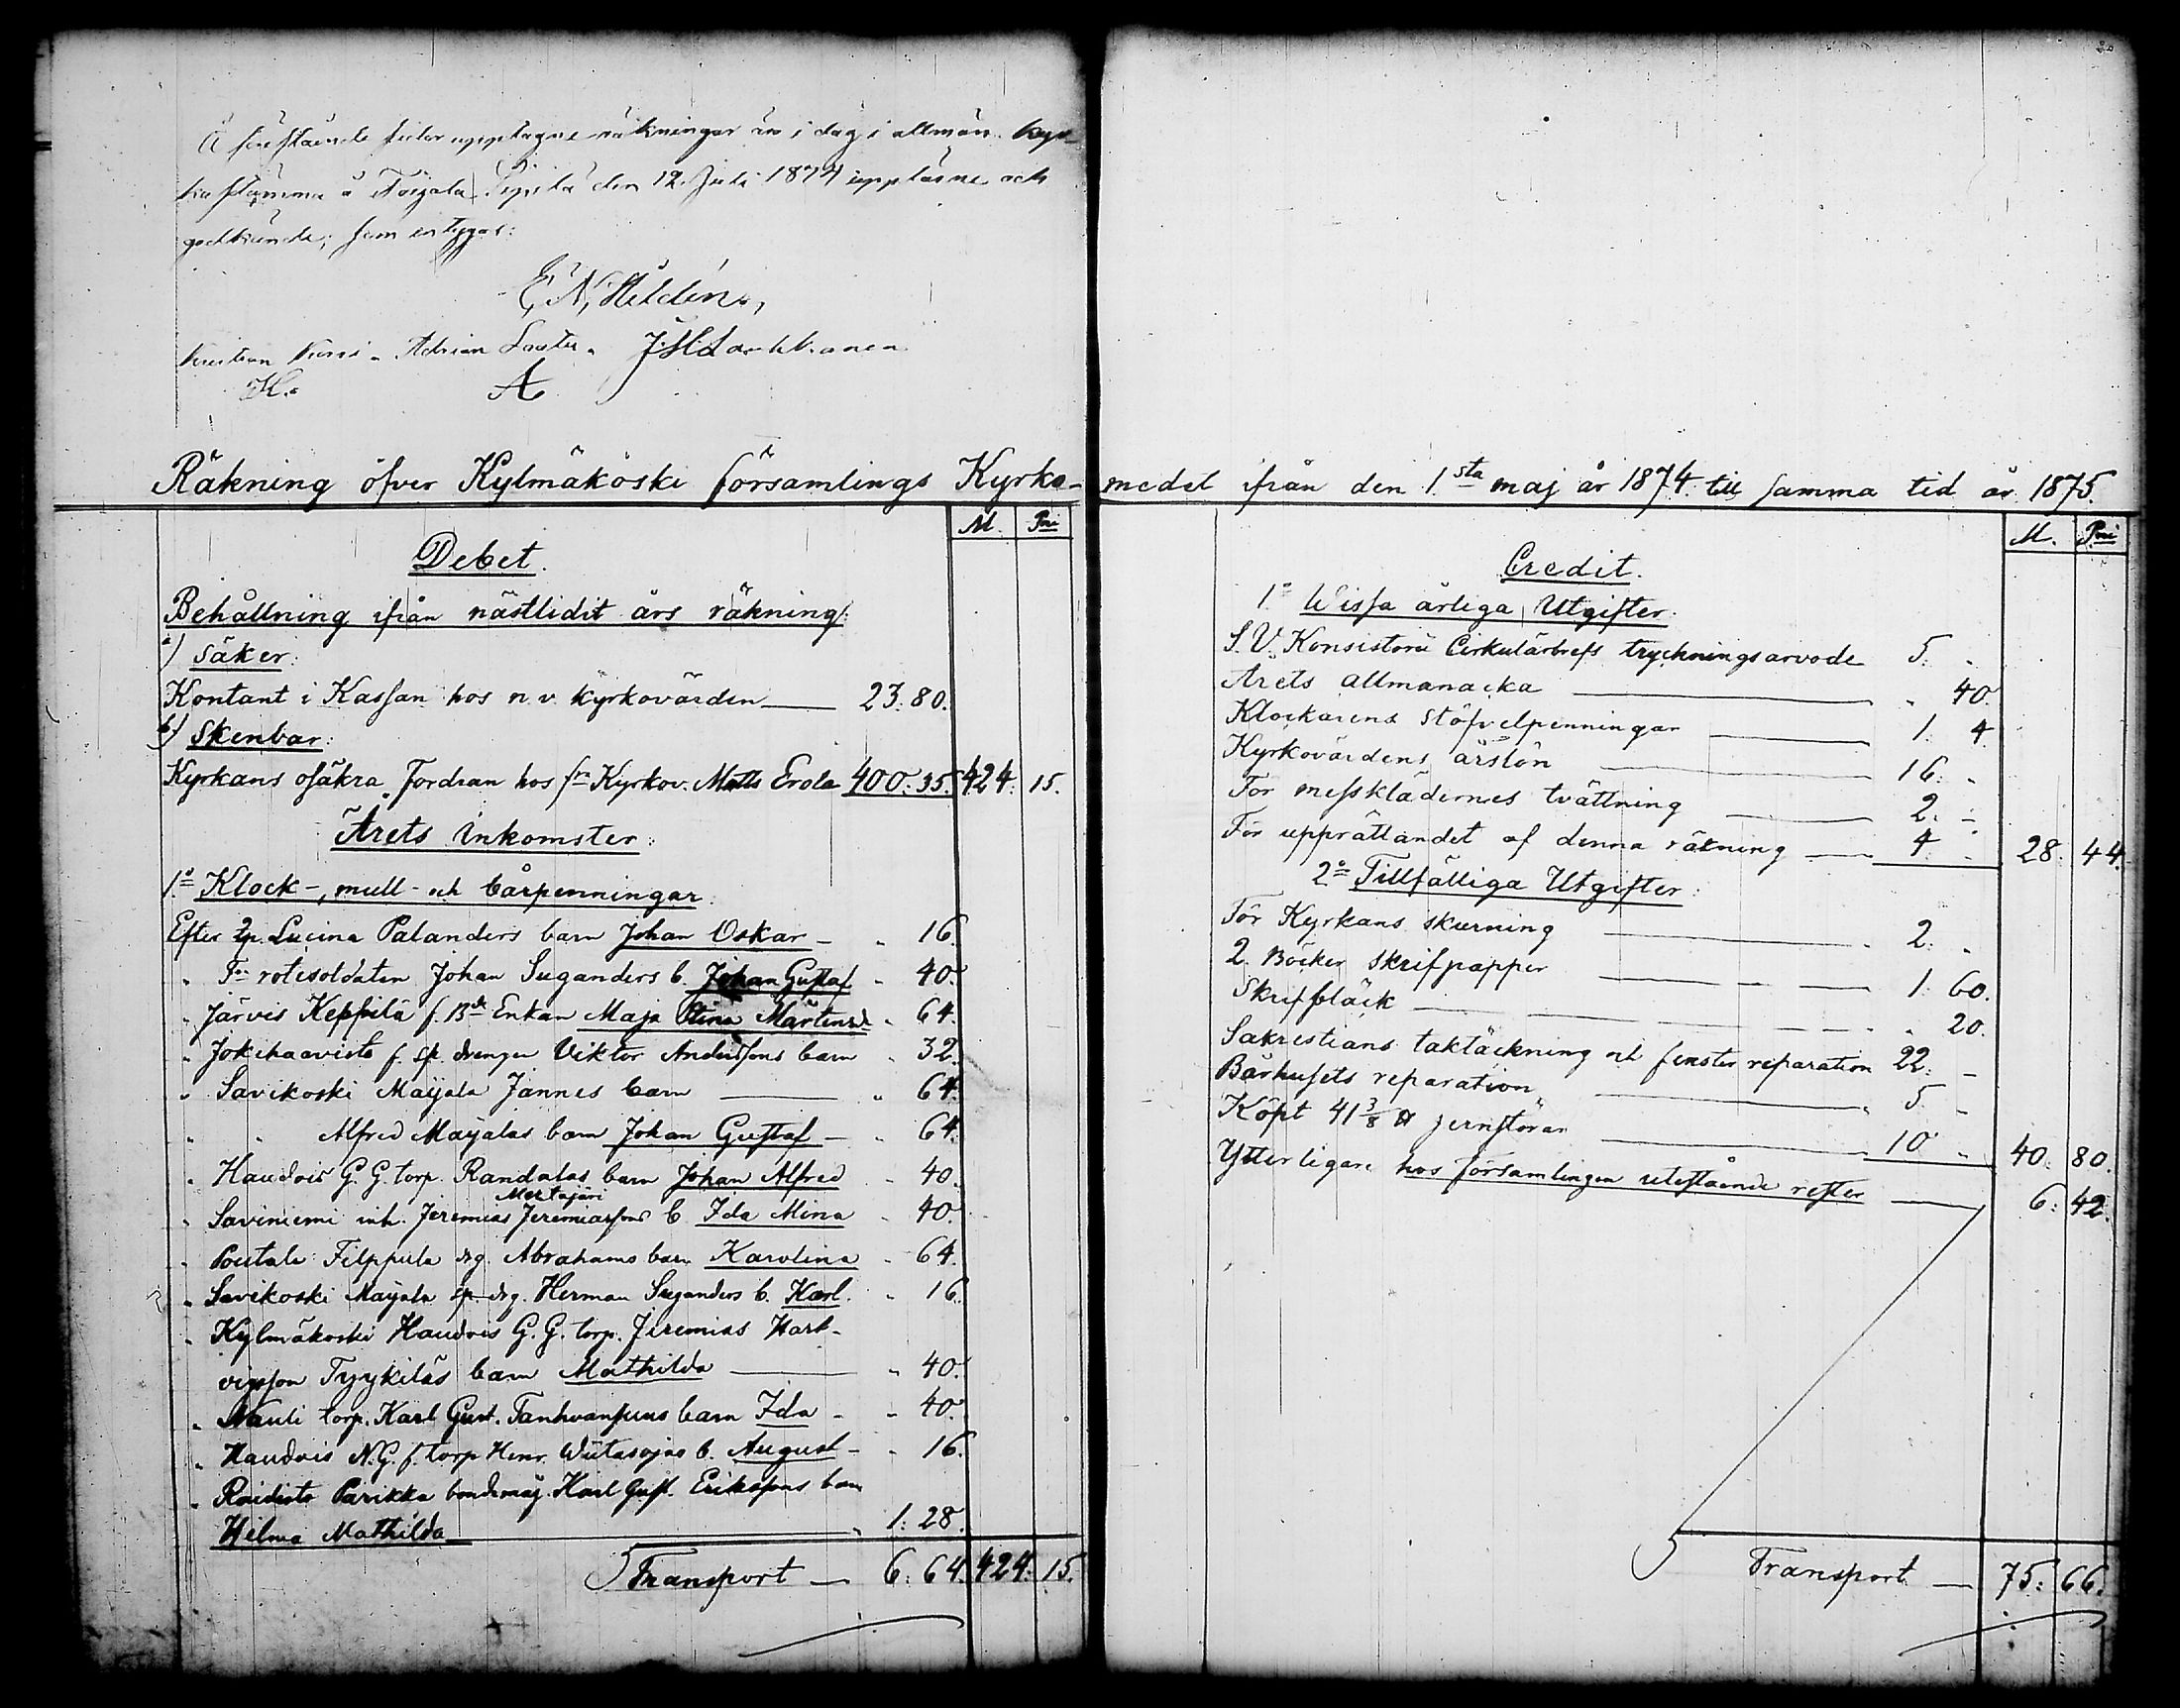 Å förestående sidor upptagne räkningar äro i dag i allmän kyr-
kostämma å Toijala Seppilä den 12 Juli 1874 uppläsne och
godkände; som intygas:
E. N. Heldén.
Kustaa Kurri. Adrian J. H. Laukkanen
K. A
Räkning öfver Kylmäkoski församlings Kyrko-
M. Pni
Debet.
Behållning ifrån nästlidit års räkning:
a) Säker:
Kontant i Kassan hos n. v. kyrkovärden 23: 80.
b) Skenbar:
Kyrkans osäkra Fordran hos frn Kyrkov. Matts Erola 400: 35. 424: 15.
Årets Inkomster:
1o Klock-, mull- och bårpenningar:
Efter Lucina Palanders barn Johan Oskar - " 16.
" Frn rotesoldaten Johan Suganders b. Johan Gustaf " 40.
" Järvis Keppilä f. Bde Enkan Maja Stina Mårtensd. " 64.
" Jokihaavisto f. sp. drengen Viktor Anderssons barn " 32.
" Savikoski Maijala Jannes barn " 64.
" " Alfred Maijalas barn Johan Gustaf - " 64.
" Haudois G. G. torp. Randalas barn Johan Alfred " 40.
Mustajäri
" Saviniemi inh. Jeremias Jeremiassons b. Ida Mina " 40.
" Poutala Filppula drg. Abrahams barn Karolina " 64.
" Savikoski Maijala sp. drg. Herman Suganders b. Karl. " 16.
" Kylmäkoski Haudois G. G. torp. Jeremias Hart-
vigsson Tyykiläs barn Mathilda " 40.
" Nauli torp. Karl Gust. Tanhuanpääs barn Ida - " 40.
" Haudois N. G. f. torp. Henr. Wiitasojas b. August - " 16.
" Raidisto Parikka bondemåg. Karl Gust. Erikssons barn
Helma Mathilda " 1: 28.
Transport 6: 64. 424: 15.
medel ifrån den 1sta maj år 1874 till samma tid år 1875.
M. Pni
Credit.
1o Wissa årliga Utgifter:
S. V. Konsistorii Cirkulärbrefs tryckningsarvode 5: "
Årets allmanacka " 40.
Klockarens stöfvelpenningar 1: 4
Kyrkovärdens årslön 16: "
För messklädernes tvättning 2: -
För upprättandet af denna räkning 4 " 28: 44.
2o Tillfälliga Utgifter:
För Kyrkans skurning " 2: "
2. Böcker skrifpapper 1: 60.
Skrifbläck " 20.
Sakrestians taktäckning och fenster reparation 22: -
Bårhusets reparation " 5. -
Köpt 41 3/8 ℔ jernstörar 10 " 40: 80.
Ytterligare hos församlingen utestående rester 6: 42.
Transport 75: 66.